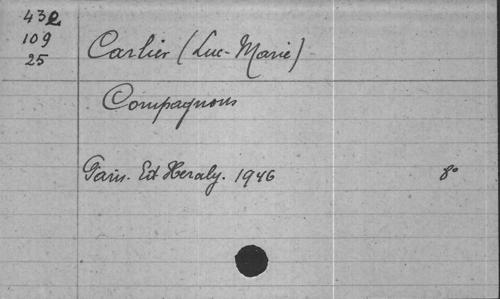 432
109
25
Carlier (Luc-Marie)
Compagnons
Paris. Ed Heraly. 1946 8°